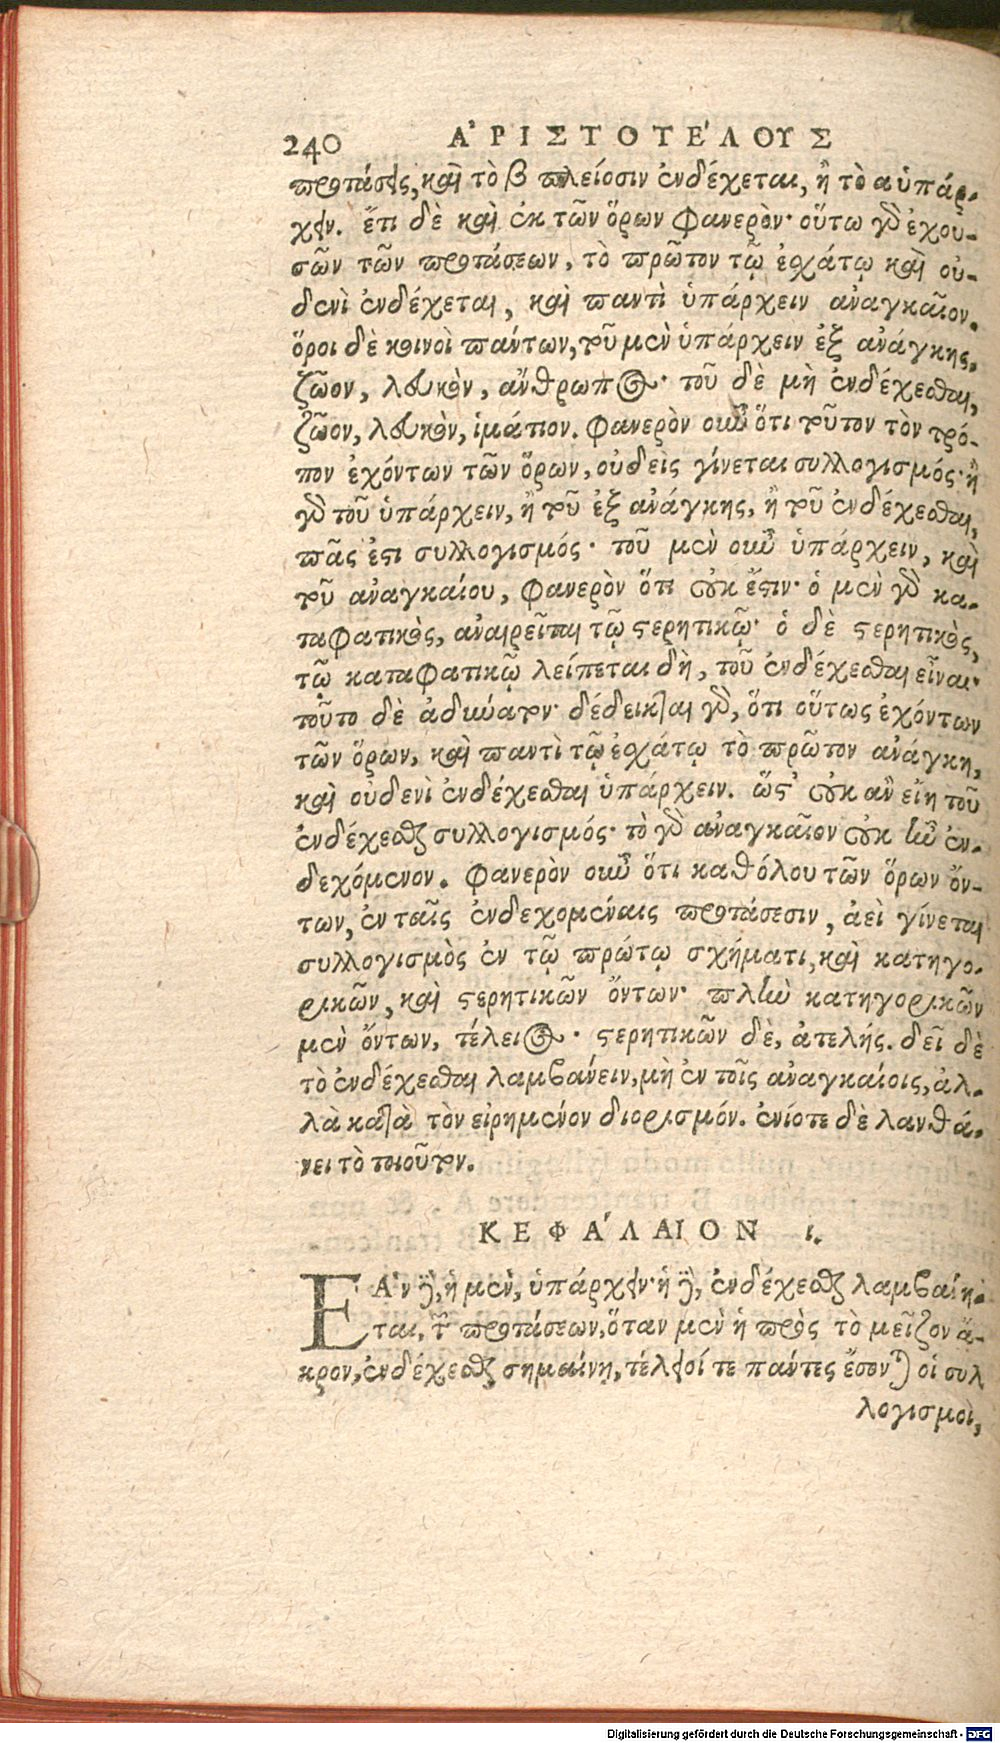 240 ἈΡΙΣΤΟΤΈΛΟΥΣ
προτάσεις, καὶ τὸ β πλείοσιν ἐνδέχεται, ἢ τὸ α ὑπάρ-
χειν. ἔτι δὲ καὶ ἐκ τῶν ὅρων φανερὸν· οὕτω γὸ ἐχου-
σῶν τῶν προτάσεων, τὸ πρῶτον τῷ ἐσχάτῳ καὶ οὐ-
δενὶ ἐνδέχεται, καὶ παντὶ ὑπάρχειν ἀναγκαῖον.
ὅροι δὲ κοινοὶ πάντων, τοῦ μὲν ὑπάρχειν ἐξ ἀνάγκης,
ζῶον, λευκὸν, ἄνθρωπος· τοῦ δὲ μὴ ἐνδέχεσθαι,
ζῶον, λευκὸν, ἱμάτιον. Φανερὸν οὖν ὅτι τοῦτον τὸν τρό-
πον ἐχόντων τῶν ὅρων, οὐδεὶς γίνεται συλλογισμός· ἢ
γὸ τοῦ ὑπάρχειν, ἢ τοῦ ἐξ ἀνάγκης, ἢ τοῦ ἐνδέχεσθαι,
πᾶς ἐστι συλλογισμός· τοῦ μὲν οὖν ὑπάρχειν, καὶ
τοῦ ἀναγκαίου, φανερὸν ὅτι οὐκ ἔστιν· ὁ μὲν γὸ κα-
ταφατικὸς, ἀναιρεῖται τῷ στερητικῷ· ὁ δὲ στερητικὸς,
τῷ καταφατικῷ λείπεται δὴ, τοῦ ἐνδέχεσθαι εἶναι·
τοῦτο δὲ ἀδύνατον· δέδεικται γὸ, ὅτι οὕτως ἐχόντων
τῶν ὅρων, καὶ παντὶ τῷ ἐσχάτῳ τὸ πρῶτον ἀνάγκη,
καὶ οὐδενὶ ἐνδέχεσθαι ὑπάρχειν. ὥστ’ οὐκ ἂν εἴη τοῦ
ἐνδέχεσθαι συλλογισμός· τὸ γὸ ἀναγκαῖον οὐκ ἦν ἐν-
δεχόμενον. Φανερὸν οὖν ὅτι καθόλου τῶν ὅρων ὄν-
των, ἐν ταῖς ἐνδεχομέναις προτάσεσιν, ἀεὶ γίνεται
συλλογισμὸς ἐν τῷ πρώτῳ σχήματι, καὶ κατηγο-
ρικῶν, καὶ στερητικῶν ὄντων· πλὴν κατηγορικῶν
μὲν ὄντων, τέλειος· στερητικῶν δὲ, ἀτελής. δεῖ δὲ
τὸ ἐνδέχεσθαι λαμβάνειν, μὴ ἐν τοῖς ἀναγκαίοις, ἀλ-
λὰ κατὰ τὸν εἰρημένον διορισμόν. ἐνίοτε δὲ λανθά-
νει τὸ τοιοῦτον.
ΚΕΦΆΛΑΙΟΝ ι.
ΕἈν δὲ, ἡ μὲν, ὑπάρχειν· ἡ δὲ, ἐνδέχεσθαι λαμβάνη-
ται, τῶν προτάσεων, ὅταν μὲν ἡ πρὸς τὸ μεῖζον ἄ-
κρον, ἐνδέχεσθαι σημαίνῃ, τέλειοί τε πάντες ἔσονται οἱ συλ
λογισμοὶ,
Digitalisierung gefördert durch die Deutsche Forschungsgemeinschaft - DFG